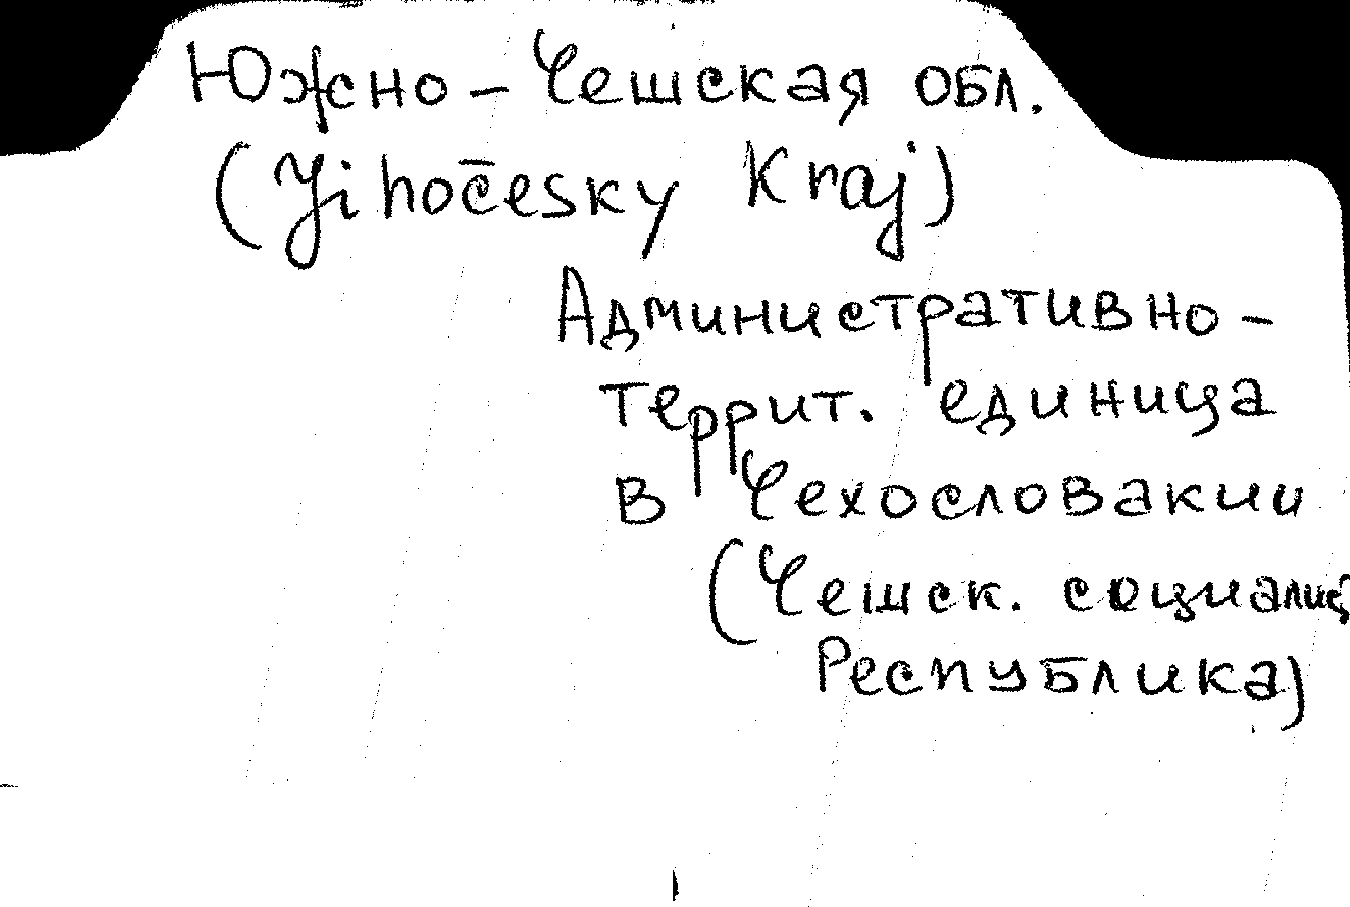 Южно-Чешская обл.
(Jihočesky Kraj)
Административно-
террит. единица
в Чехословакии
(Чешск. социалис
Республика)